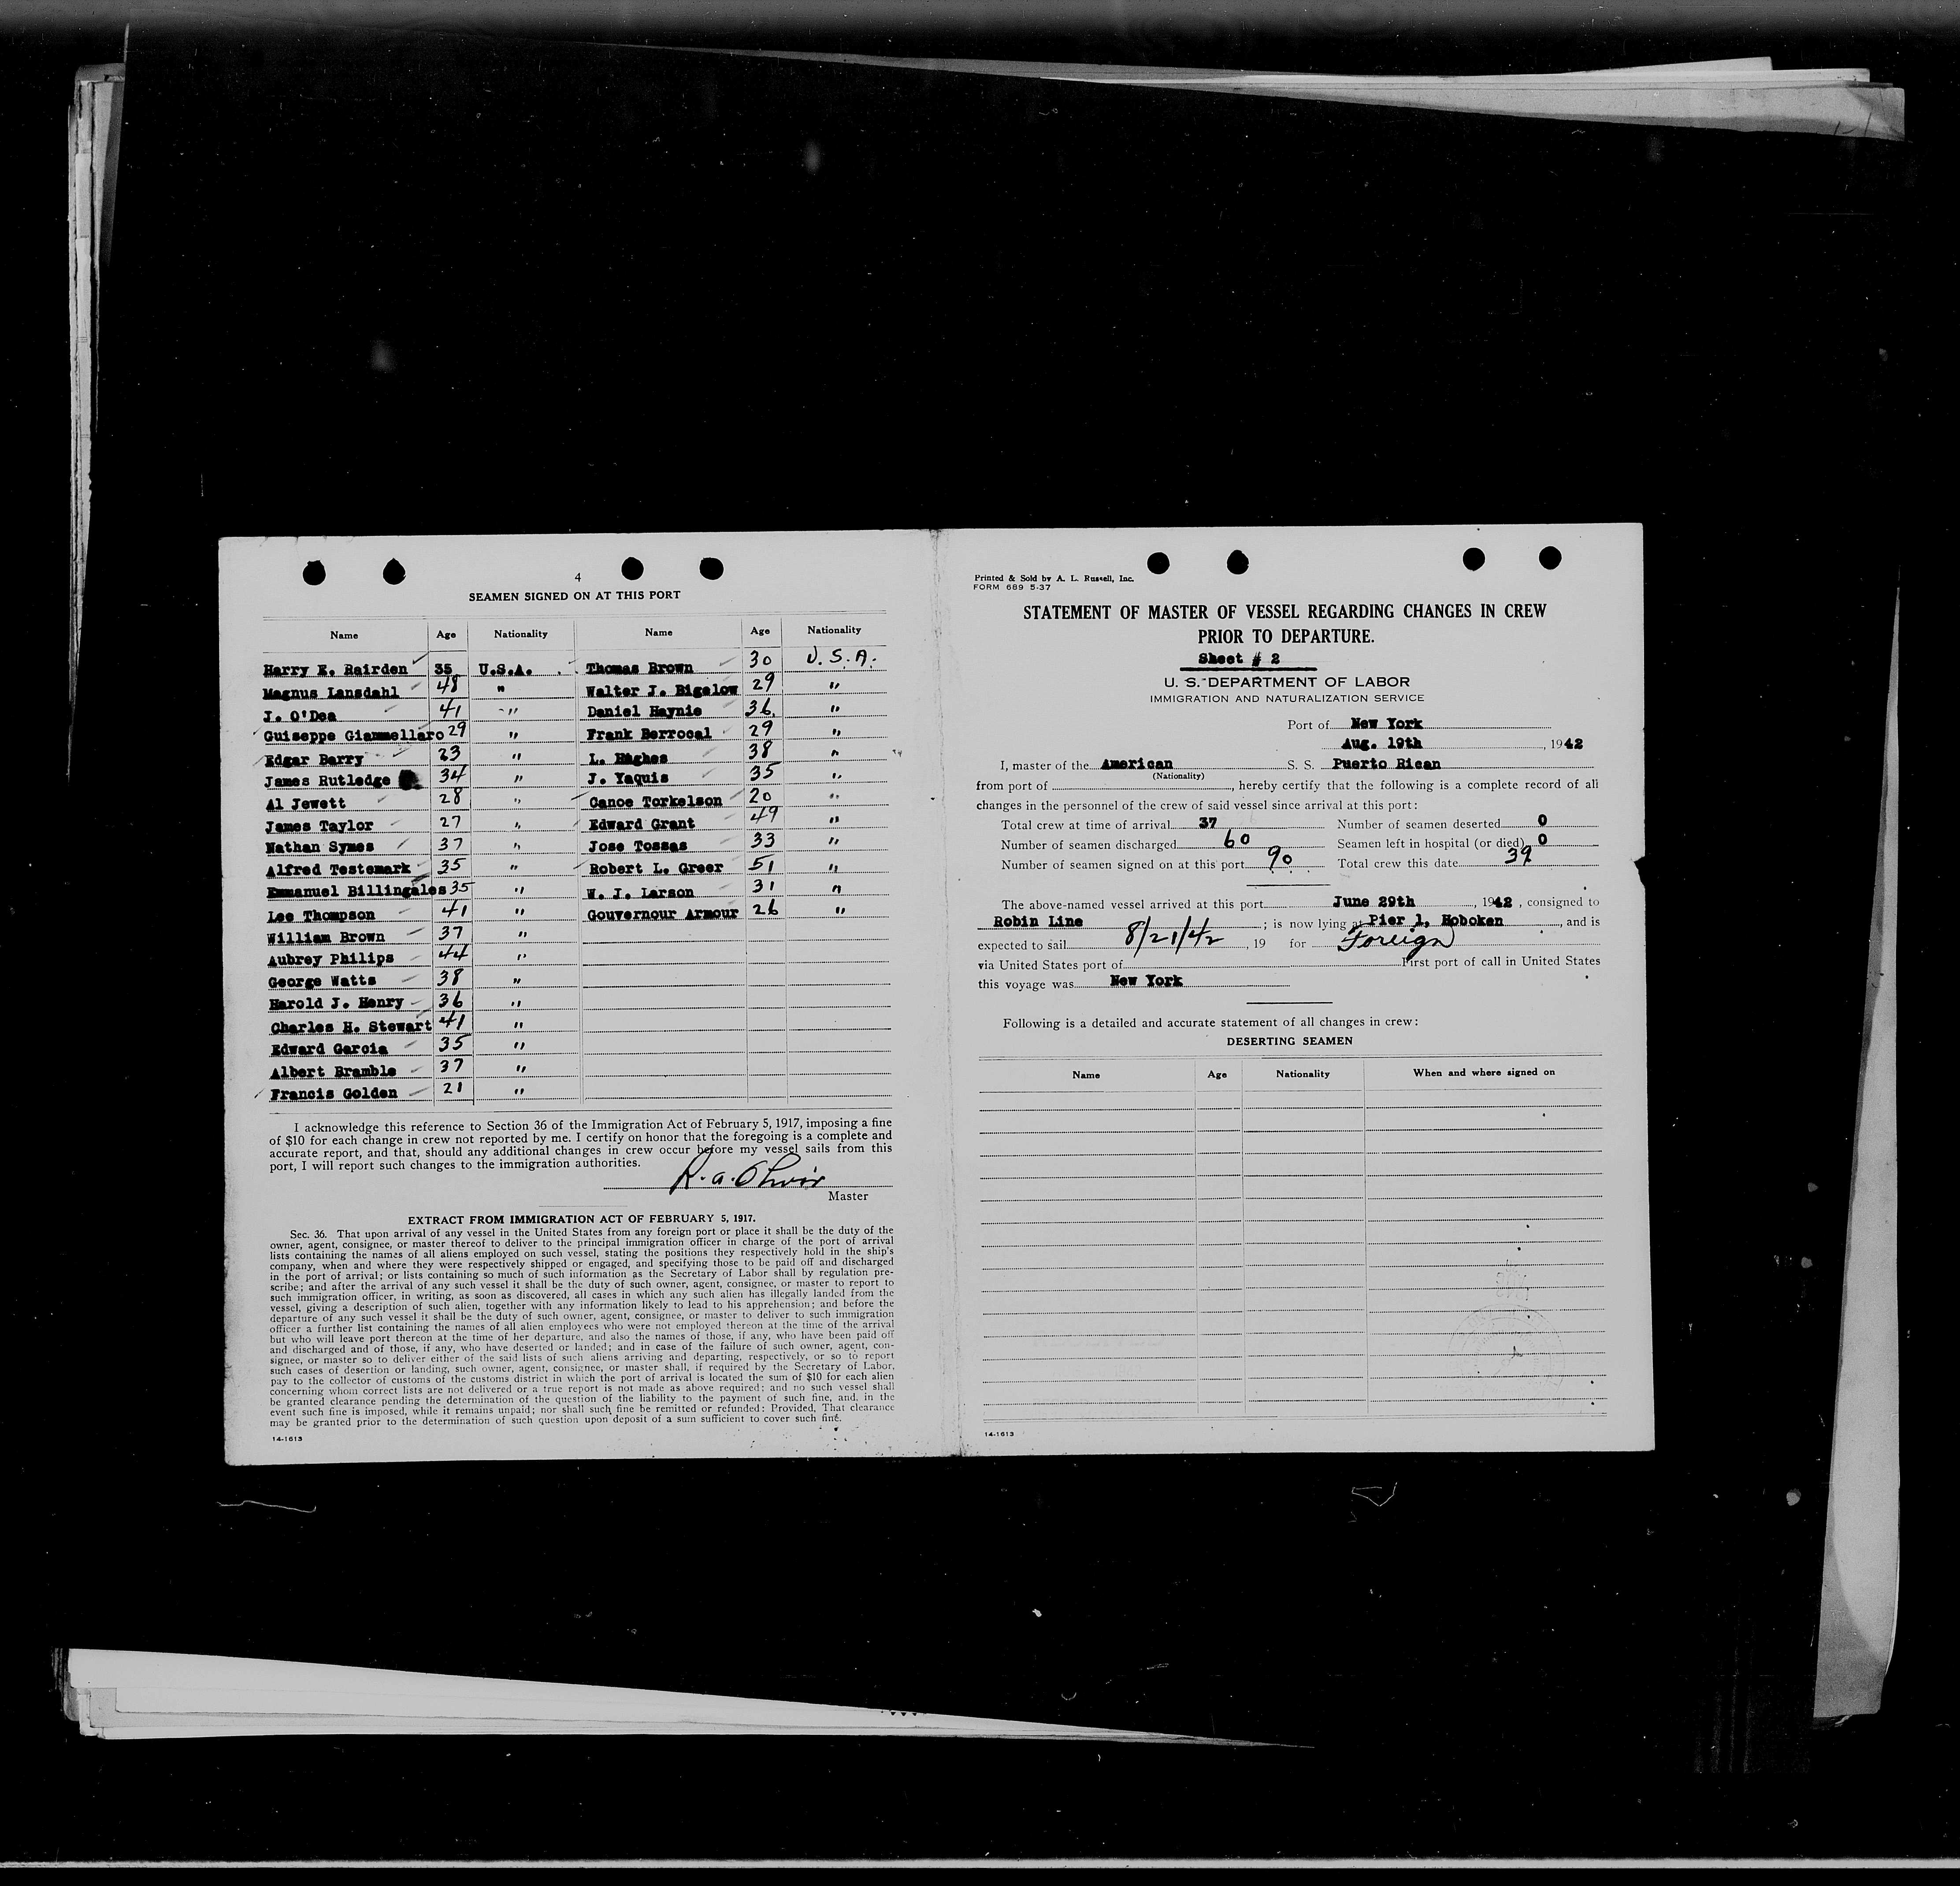 4
SEAMEN SIGNED ON AT THIS PORT
Name Age Nationality Name Age Nationality
Harry E. Bairden 35 U.S.A. Thomas Brown 30 U.S.A.
Magnus Lansdahl 48 " Walter J. Bigelow 29 "
J. O'Dea 41 " Daniel Haynie 36 "
Guiseppe Giammellaro 29 " Frank Berrocal 29 "
Edgar Barry 23 " L. Hughes 38 "
James Rutledge 34 " J. Yaquis 35 "
Al Jewett 28 " Canoe Torkelson 20 "
James Taylor 27 " Edward Grant 49 "
Nathan Symes 37 " Jose Tossas 33 "
Alfred Testemark 35 " Robert L. Greer 51 "
Emmanuel Billingales 35 " W. J. Larson 31 "
Lee Thompson 41 " Gouvernour Armour 26 "
William Brown 37 "
Aubrey Philips 44 "
George Watts 38 "
Harold J. Henry 36 "
Charles H. Stewart 41 "
Edward Garcia 35 "
Albert Bramble 37 "
Francis Golden 21 "
I acknowledge this reference to Section 36 of the Immigration Act of February 5, 1917, imposing a fine
of $10 for each change in crew not reported by me. I certify on honor that the foregoing is a complete and
accurate report, and that, should any additional changes in crew occur before my vessel sails from this
port, I will report such changes to the immigration authorities.
R. A.
Master
EXTRACT FROM IMMIGRATION ACT OF FEBRUARY 5, 1917.
Sec. 36. That upon arrival of any vessel in the United States from any foreign port or place it shall be the duty of the
owner, agent, consignee, or master thereof to deliver to the principal immigration officer in charge of the port of arrival
lists containing the names of all aliens employed on such vessel, stating the positions they respectively hold in the ship's
company, when and where they were respectively shipped or engaged, and specifying those to be paid off and discharged
in the port of arrival; or lists containing so much of such information as the Secretary of Labor shall by regulation pre-
scribe; and after the arrival of any such vessel it shall be the duty of such owner, agent, consignee, or master to report to
such immigration officer, in writing, as soon as discovered, all cases in which any such alien has illegally landed from the
vessel, giving a description of such alien, together with any information likely to lead to his apprehension; and before the
departure of any such vessel it shall be the duty of such owner, agent, consignee, or master to deliver to such immigration
officer a further list containing the names of all alien employees who were not employed thereon at the time of the arrival
but who will leave port thereon at the time of her departure, and also the names of those, if any, who have been paid off
and discharged and of those, if any, who have deserted or landed; and in case of the failure of such owner, agent, con-
signee, or master so to deliver either of the said lists of such aliens arriving and departing, respectively, or so to report
such cases of desertion or landing, such owner, agent, consignee, or master shall, if required by the Secretary of Labor,
pay to the collector of customs of the customs district in which the port of arrival is located the sum of $10 for each alien
concerning whom correct lists are not delivered or a true report is not made as above required; and no such vessel shall
be granted clearance pending the determination of the question of the liability to the payment of such fine, and, in the
event such fine is imposed, while it remains unpaid; nor shall such fine be remitted or refunded: Provided, That clearance
may be granted prior to the determination of such question upon deposit of a sum sufficient to cover such fine.
14-1613
Printed & Sold by A. L. Russell, Inc.
FORM 689 5-37
STATEMENT OF MASTER OF VESSEL REGARDING CHANGES IN CREW
PRIOR TO DEPARTURE.
Sheet # 2
U. S. DEPARTMENT OF LABOR
IMMIGRATION AND NATURALIZATION SERVICE
Port of New York
Aug. 19th, 1942
I, master of the American S. S. Puerto Rican
(Nationality)
from port of , hereby certify that the following is a complete record of all
changes in the personnel of the crew of said vessel since arrival at this port:
Total crew at time of arrival 37 Number of seamen deserted 0
Number of seamen discharged 60 Seamen left in hospital (or died) 0
Number of seamen signed on at this port 90 Total crew this date 39
The above-named vessel arrived at this port June 29th, 1942, consigned to
Robin Line ; is now lying at Pier 1, Hoboken, and is
expected to sail 8/21/42, 19 for Foreign
via United States port of First port of call in United States
this voyage was New York
Following is a detailed and accurate statement of all changes in crew:
DESERTING SEAMEN
Name Age Nationality When and where signed on
14-1613